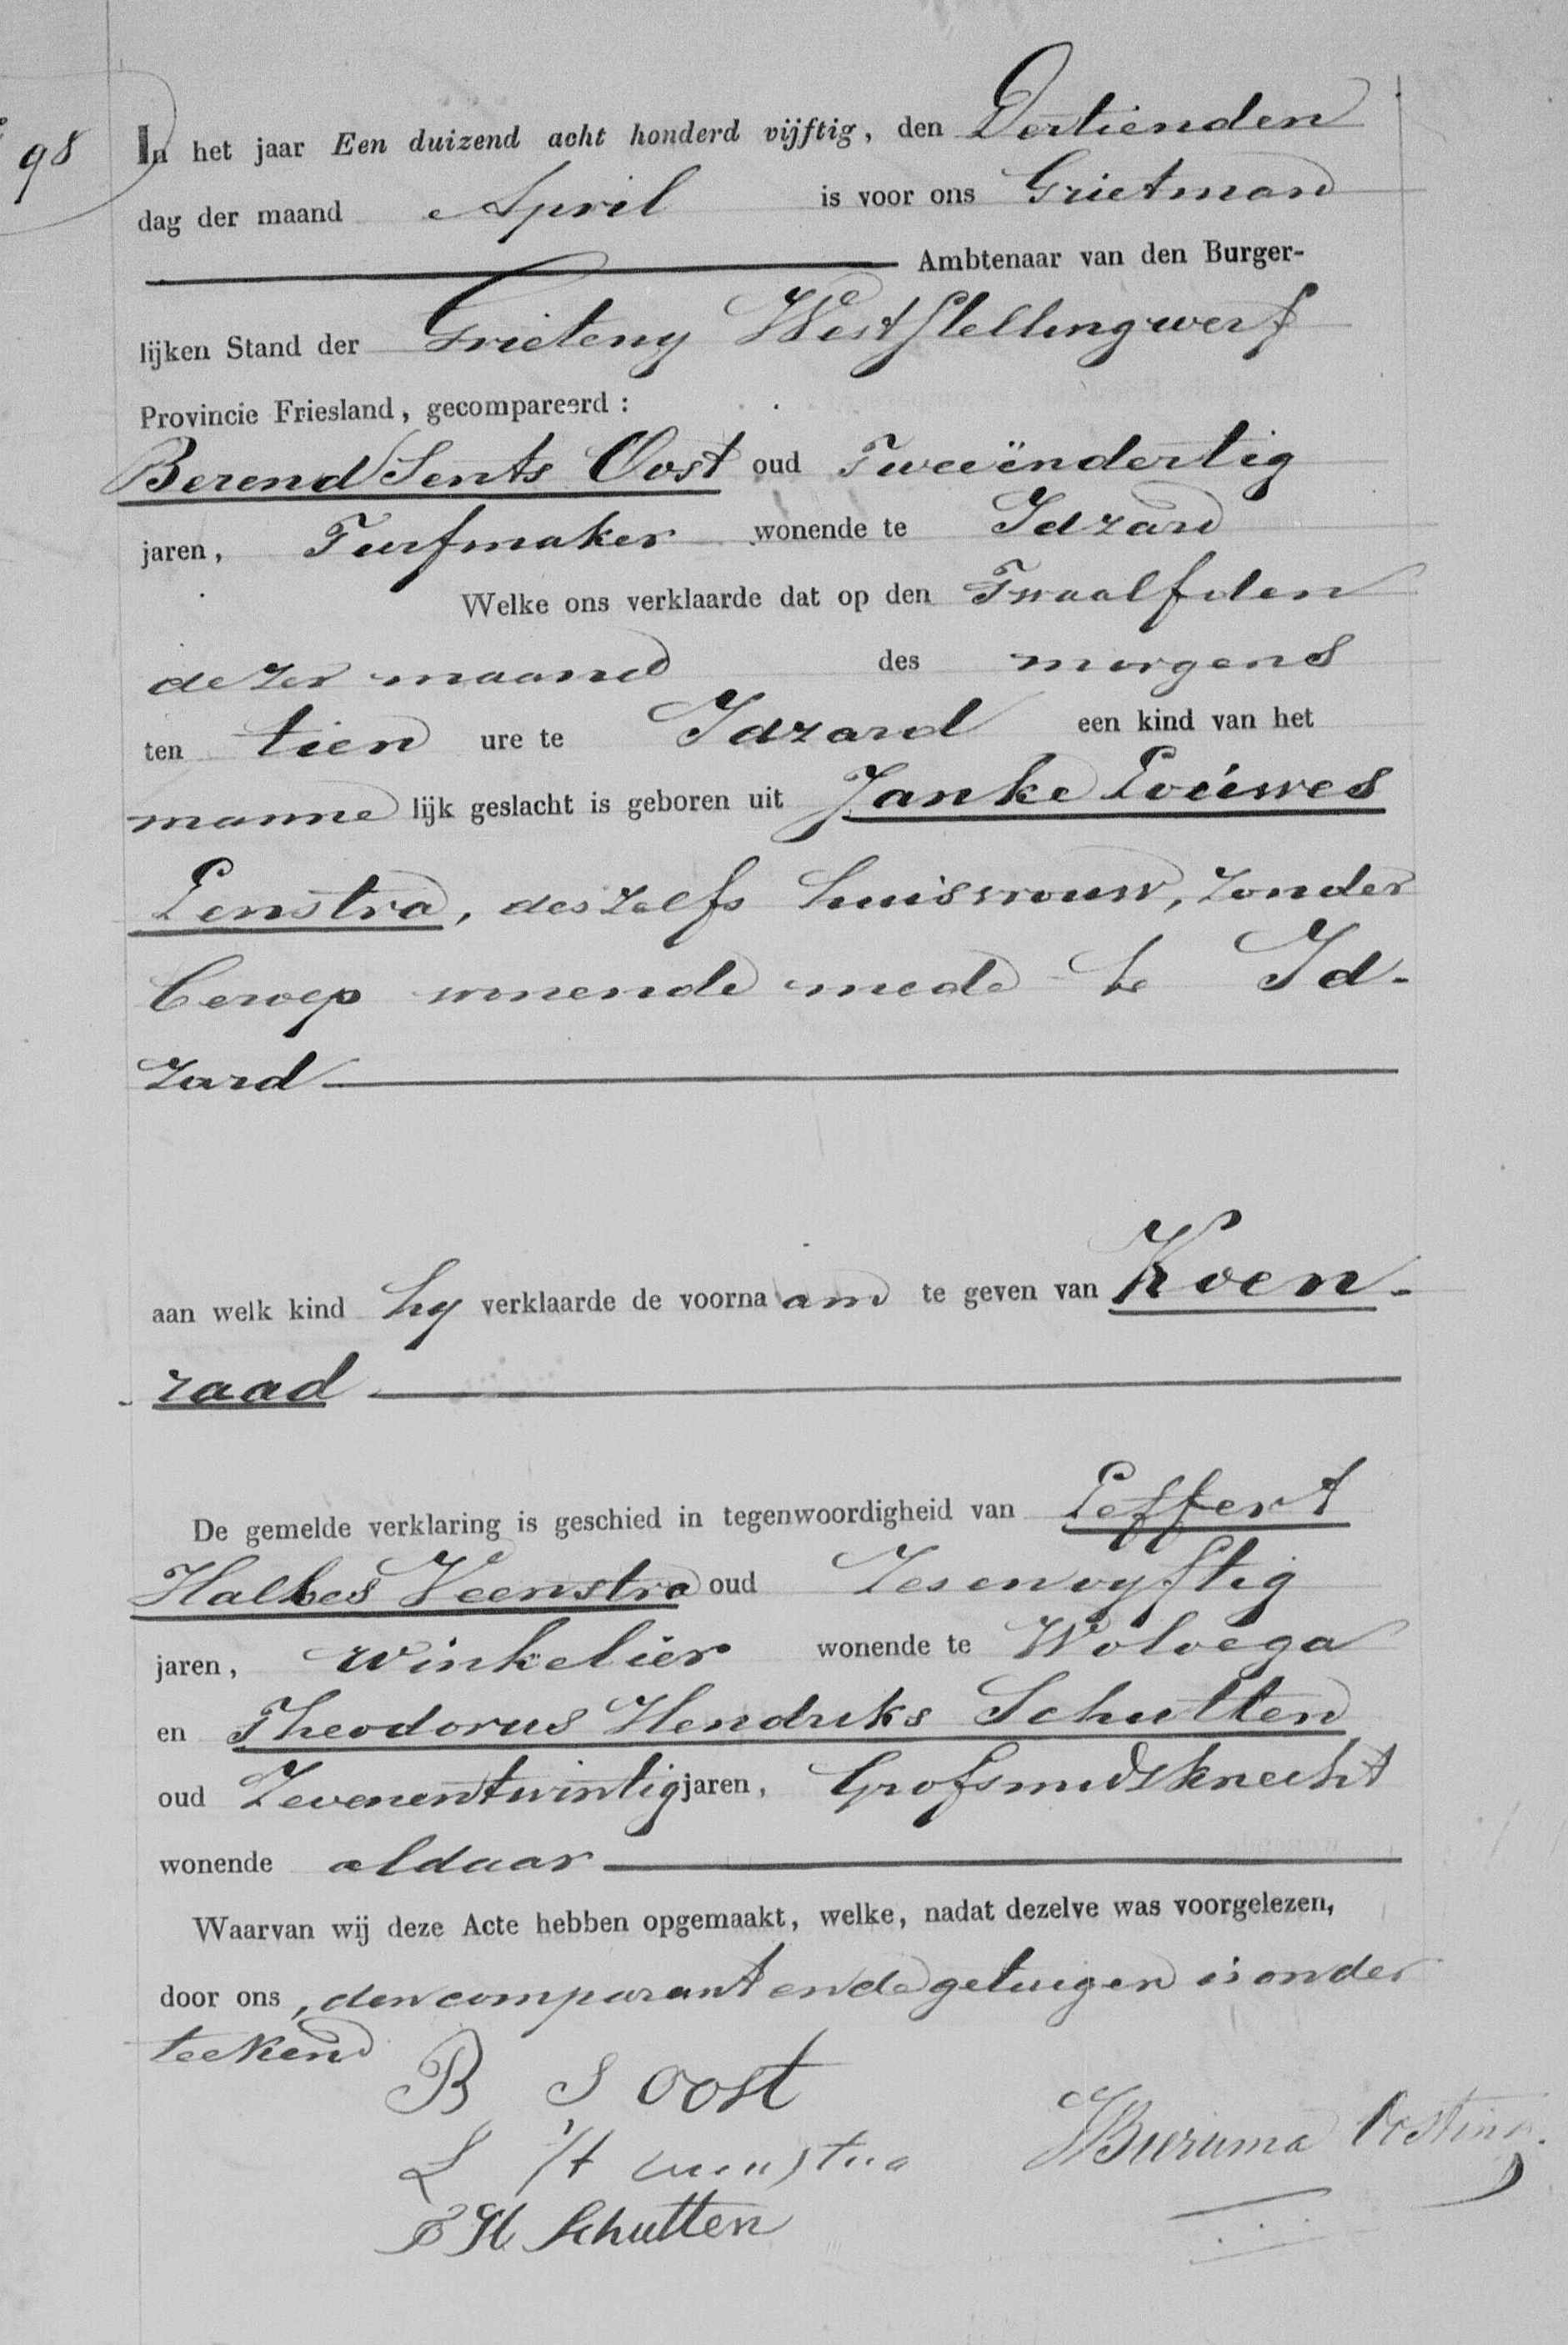 98
In het jaar Een duizend acht honderd vijftig, den Dertienden
dag der maand April is voor ons Grietman
Ambtenaar van den Burger-
lijken Stand der Grieteny WestStellingwerf
Provincie Friesland, gecompareerd:
Berend Sents Oost oud Tweeëndertig
jaren, Turfmaker wonende te Idzard
Welke ons verklaarde dat op den Twaalfden
dezer maand des morgens
ten tien ure te Idzard een kind van het
mannelijk geslacht is geboren uit Janke Louwes
Lenstra, deszelfs huisvrouw, zonder
beroep wonende mede te Id-
zard
aan welk kind hy verklaarde de voornaam te geven van Koen-
raad
De gemelde verklaring is geschied in tegenwoordigheid van Leffert
Halbes Veenstra oud Zesenvyftig
jaren, winkelier wonende te Wolvega
en Theodorus Hendriks Schutten
oud Zevenentwintig jaren, Grofsmidsknecht
wonende aldaar
Waarvan wij deze Acte hebben opgemaakt, welke, nadat dezelve was voorgelezen,
door ons, den comparant en de getuigen is onder
teekend
B S Oost
L H Veenstra
Buruma Oosting
T H Schutten